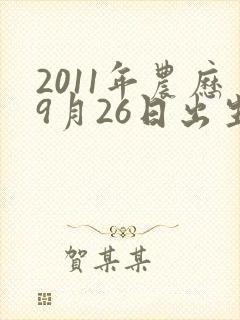 2011年農歷
9月26日出生
賀某某